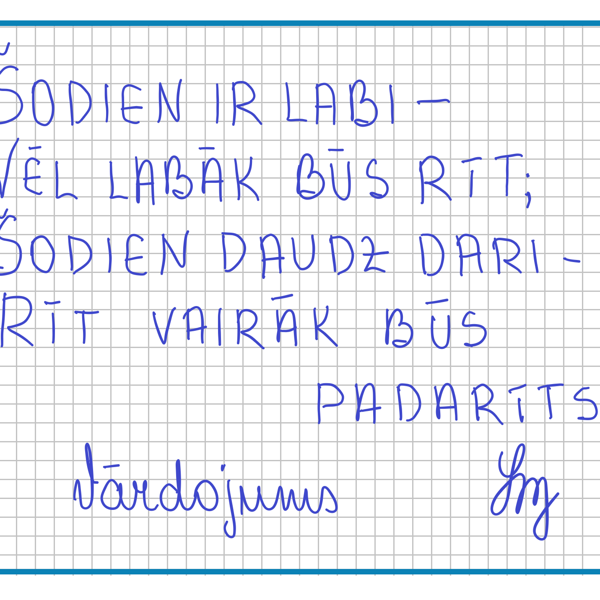 ŠODIEN IR LABI –
VĒL LABĀK BŪS RĪT;
ŠODIEN DAUDZ DARI -
RĪT VAIRĀK BŪS
PADARĪTS
Vārdojums